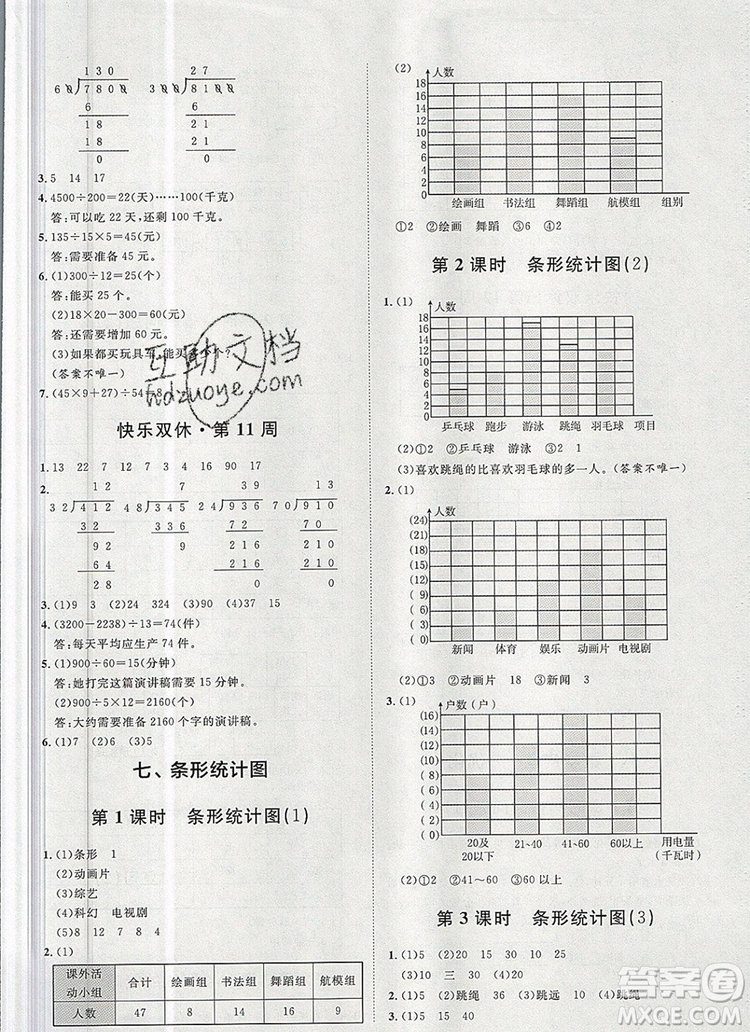 130
60)7800
6
18
18
0
27
300)8100
6
21
21
0
3. 5 14 17
4. 4500÷200=22(天)……100(千克)
答:可以吃 22 天,还剩 100 千克。
5. 135÷15×5=45(元)
答:需要准备 45 元。
6. (1)300÷12=25(个)
答:能买 25 个。
(2)18×20-300=60(元)
答:还需要增加 60 元。
(3)如果都买玩具车,能买多少个?
(答案不唯一)
7. (45×9+27)÷54=8
快乐双休·第 11 周
1. 13 22 17 16 90 17
2.
12
32)412
32
92
64
28
7
48)345
336
9
39
24)936
72
216
216
0
13
70)910
70
210
210
0
3. (1)9 3 (2)24 324 (3)90 (4)37 15
4. (3200-2238)÷13=74(件)
答:每天平均应生产 74 件。
5. (1)900÷60=15(分钟)
答:她打完这篇演讲稿需要 15 分钟。
(2)900÷5×12=2160(个)
答:大约要准备 2160 个字的演讲稿。
6. (1)7 (2)6 (3)5
七、条形统计图
第 1 课时 条形统计图(1)
1. (1)条形 1
(2)动画片
(3)综艺
(4)科幻 电视剧
(5)8 12 7 8 4
2. (1)
课外活动小组 合计 绘画组 书法组 舞蹈组 航模组
人数 47 8 14 16 9
(2)
人数
18
16
14
12
10
8
6
4
2
0
绘画组 书法组 舞蹈组 航模组 组别
①2 ②绘画 舞蹈 ③6 ④2
第 2 课时 条形统计图(2)
1. (1)
人数
18
16
14
12
10
8
6
4
2
0
乒乓球 跑步 游泳 跳绳 羽毛球 项目
(2)乒乓球 游泳 ③2 1
(3)喜欢跳绳的比喜欢羽毛球的多一人。(答案不唯一)
2. (1)
人数
(24)
(21)
(18)
(15)
(12)
(9)
(6)
(3)
0
新闻 体育 娱乐 动画片 电视剧
(2)①3 ②动画片 18 ③新闻 3
3. (1)
户数(户)
(16)
(14)
(12)
(10)
(8)
(6)
(4)
(2)
0
20及20以下 21~40 41~60 60以上 用电量(千瓦时)
(2)①2 ②41~60 ③60以上
第 3 课时 条形统计图(3)
1. (1)5 (2)20 15 30 10 25
(3)10 三 30 (4)20
2. (1)5 (2)跳绳 (3)跳远 10 (4)跳绳
3. (1)5 15 40
互助文档
hdzuoye.com
答案圈
MXQE.COM